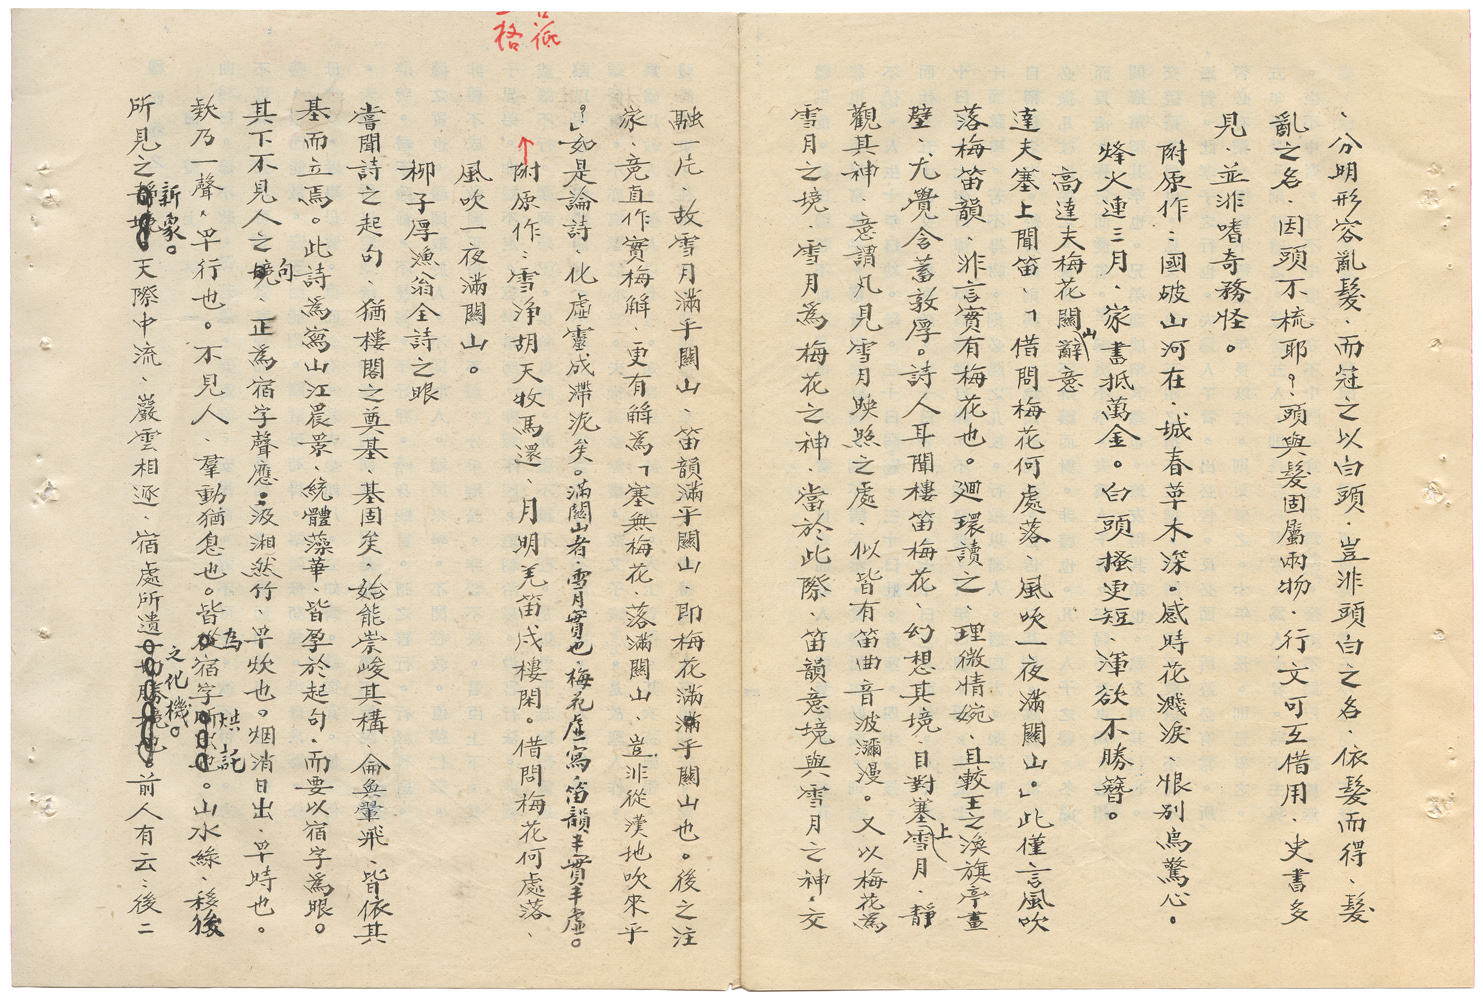 、分明形容亂髮、而冠之以白頭、豈非頭白之名、依髮而得、髮
亂之名、因頭不梳耶？頭與髮固屬兩物、行文可互借用、史書多
見、並非嗜奇務怪。
附原作：國破山河在、城春草木深。感時花濺淚 恨別鳥驚心。
烽火連三月、家書抵萬金。白頭搔更短 渾欲不勝簪。
高達夫梅花關山辭意
達夫塞上聞笛、「借問梅花何處落、風吹一夜滿關山。」此僅言風吹
落梅笛韻、非言實有梅花也。迴環讀之、理微情婉、且較王之渙旗亭畫
壁、尤覺含蓄敦厚。詩人耳聞樓笛梅花、幻想其境、目對塞上雪月、靜
觀其神 意謂凡見雪月映照之處 似皆有笛曲音波瀰漫。又以梅花為
雪月之境、雪月為梅花之神、當於此際、笛韻意境與雪月之神、交
融一片、故雪月滿乎關山 笛韻滿乎關山、即梅花滿乎關山也。後之注
家、竟直作實梅解、更有解為「塞無梅花、落滿關山、豈非從漢地吹來乎
？」如是論詩、化虛靈成滯泥矣。滿關山者、雪月實也、梅花虛寫、笛韻半實半虛。
附原作：雪淨胡天牧馬還、月明羌笛戍樓閑。借問梅花何處落、
風吹一夜滿關山。
柳子厚漁翁全詩之眼
嘗聞詩之起句、猶樓閣之奠基 基固矣 始能崇峻其構、侖奐翬飛、皆依其
基而立焉。此詩為寫山江晨景、統體藻華、皆孕於起句、而要以宿字為眼。
其下不見人之句、正為宿字聲應：汲湘燃竹、早炊也。烟消日出、早時也。
欸乃一聲、早行也。不見人、羣動猶息也。皆為宿字。山水綠、移後
所見之新象。天際中流、巖雲相逐、宿處所遺之化機。前人有云：後二